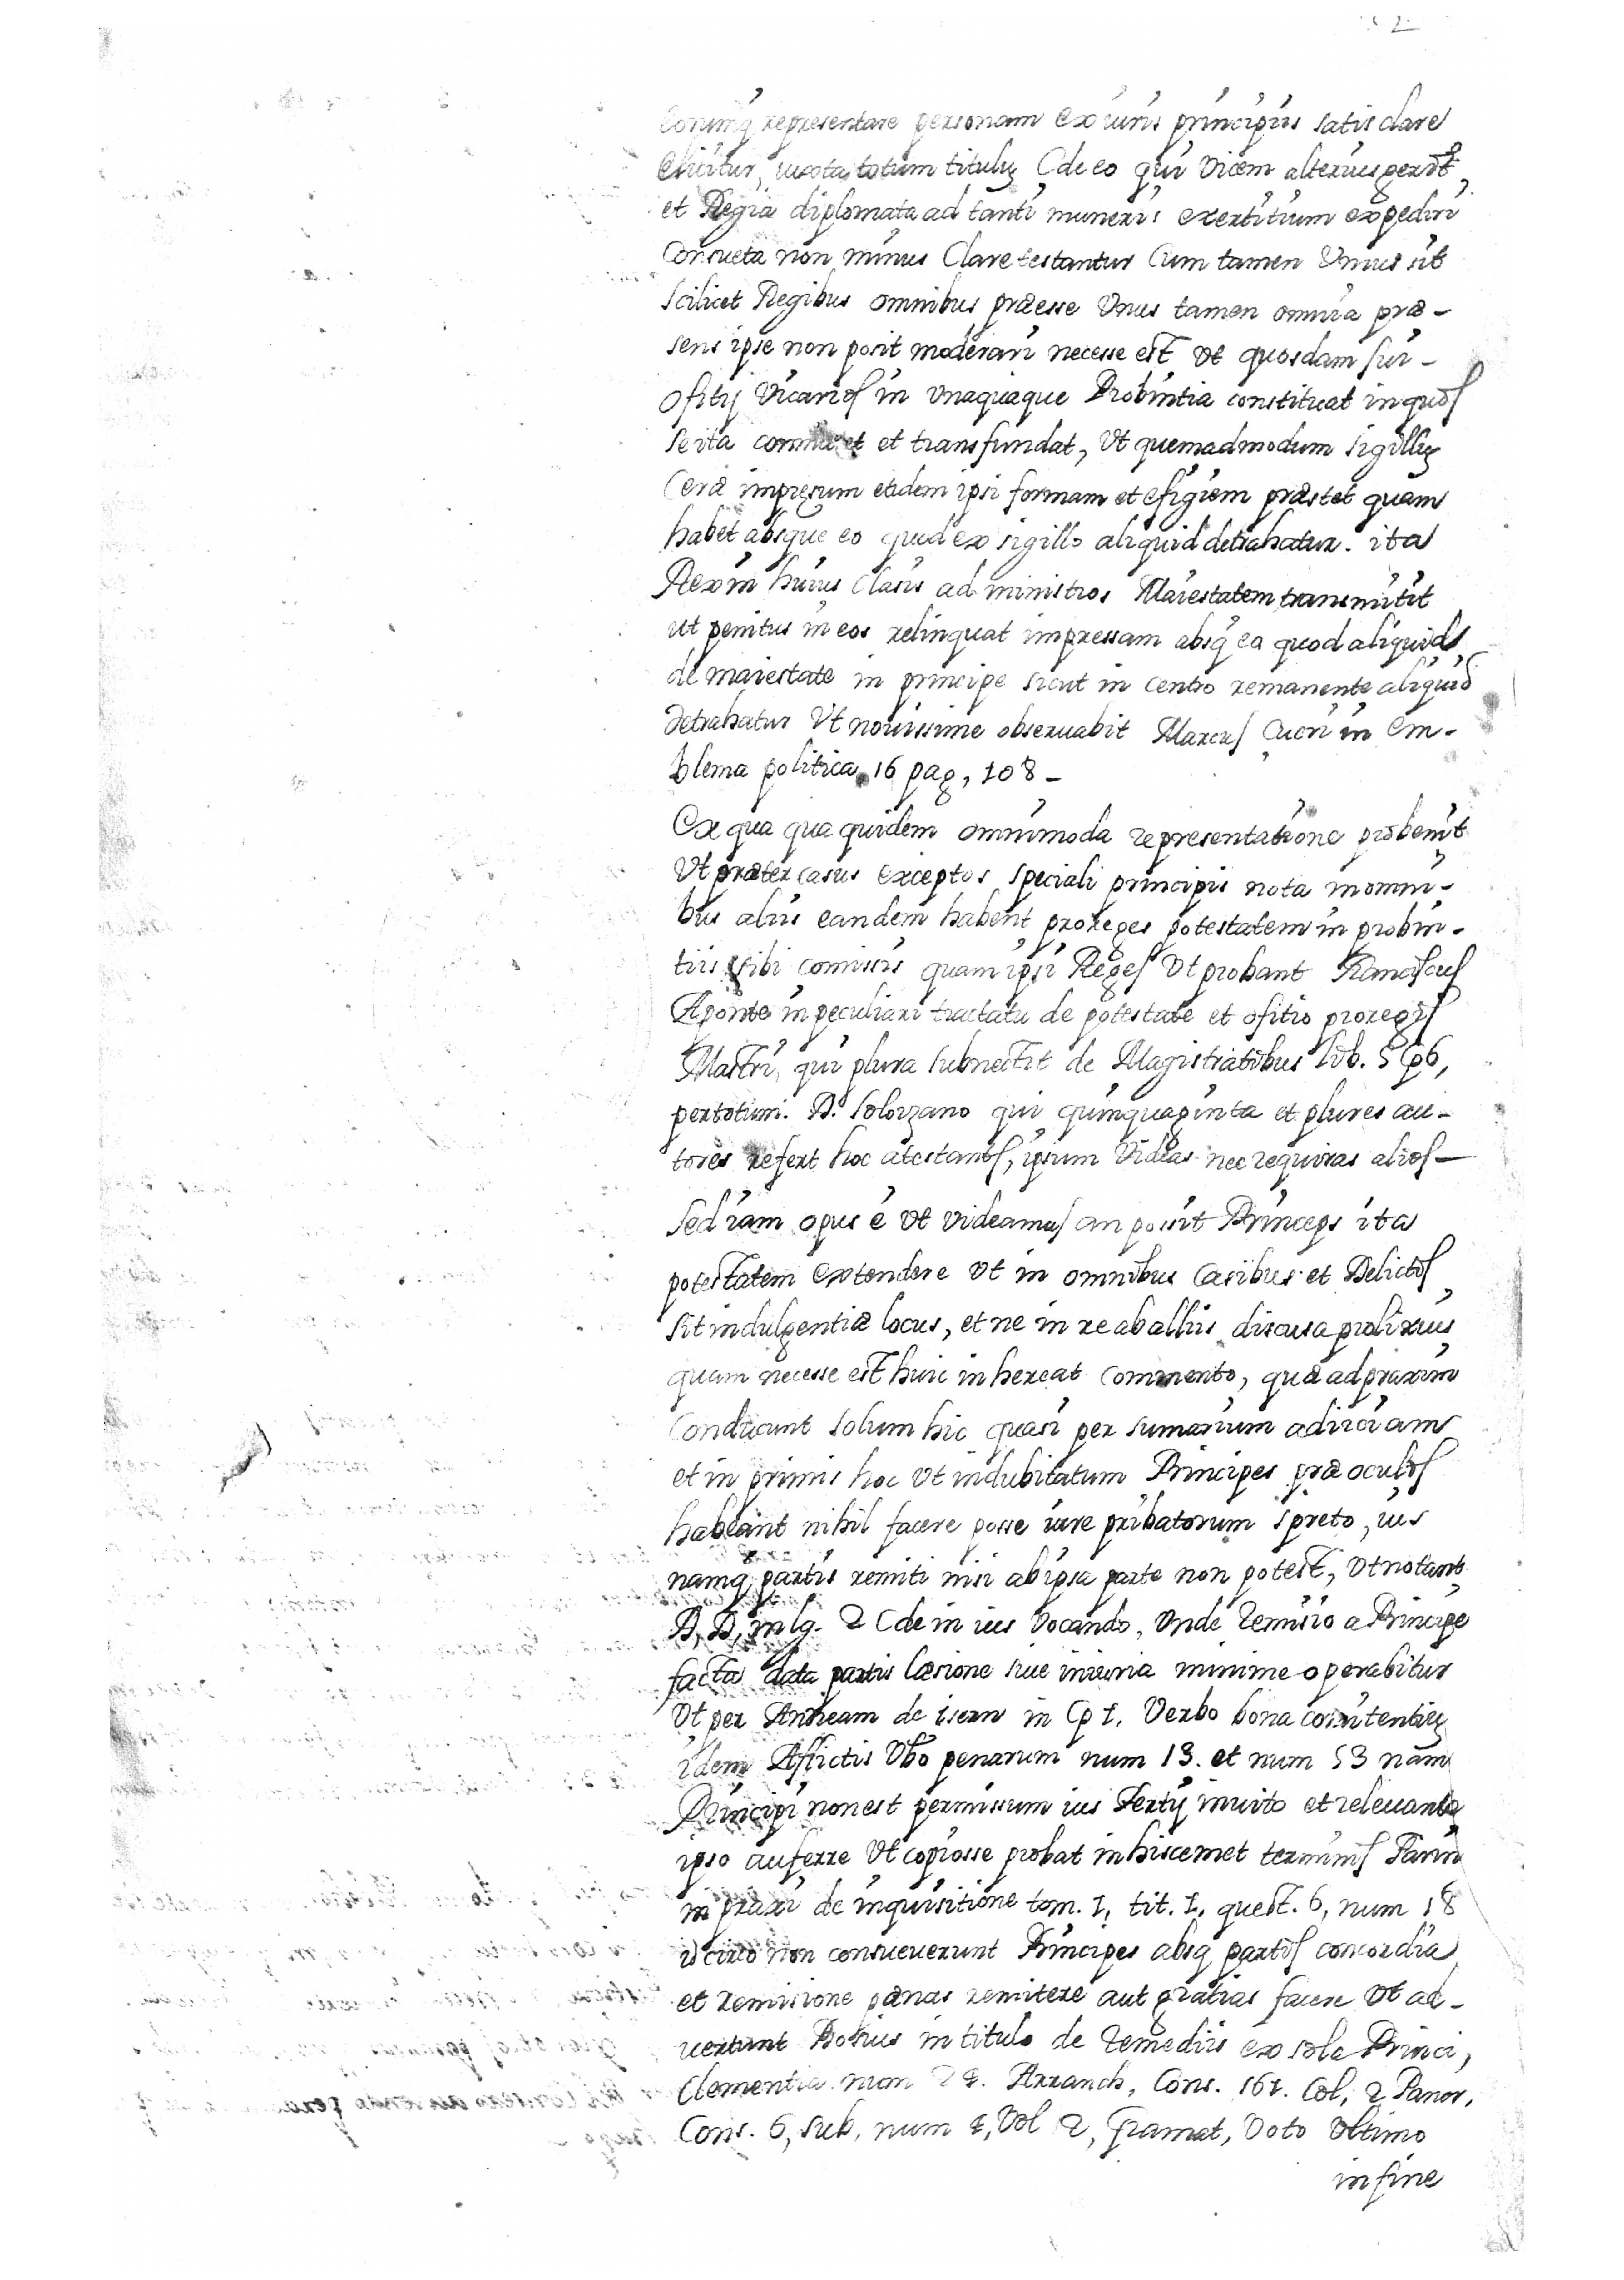 2
eorumq̃ representare personam ex iuris principiis satis clare
elicitur, iuxta totum titulũ C de eo qui vicem alterius gerit,
et Regia diplomata ad tanti muneris exertitium expediri
consueta non minus clare testantur Cum tamen Unus sit
scilicet Regibus omnibus præesse Unus tamen omnia præ-
sens ipse non posit moderari necesse est Vt quosdam sui-
ofitij Vicarios in Unaquaque Probintia constituat in quos
se ita et transfundat, Vt quemadmodum sigillũ
Ceræ impresum eidem ipsi formam et efigiem præstet quam
habet absque eo quod ex sigillo aliquid detrahatur. ita
Rex in huius Clasis ad ministros Maiestatem transmitit
ut penitus in eos relinquat impressam absq̃ eo quod aliquid
de maiestate in principe sicut in centro remanente aliquid
detrahatur Vt nouissime obseruabit Marcus in em-
blema politica 16 pag, 108-
Ex qua qua quidem omnimoda representatione probenit
Vt præter casus exceptos speciali principis nota in omni-
bus aliis eandem habent proreges potestatem in probin-
tiis sibi comissis quam ipsi Reges Vt probant Franciscus
Aponte in peculiari tractatu de potestate et ofitio proregis
Mastri, qui plura subnectit de Magistratibus lib. 5 Cp 6,
per totum. D.º Solorzano qui quinquaginta et plures au-
tores refert hoc atestantes, ipsum Videas nec requiras alios-
Sed iam opus é Vt videamus an possit Princeps ita
potestatem extendere Vt in omnibus Casibus et Delictis
sit indulgentiæ locus, et ne in re ab alliis discusa prolixius
quam necesse est huic inhereat commento, quæ ad praxim
conducunt solum hic quasi per sumarium adiiciam
et in primis hoc Vt indubitatum Principes præ oculis
habeant nihil facere posse iure pribatorum spreto, ius
namq̃ partis remiti nisi ab ipsa parte non potest, Vt notant
D, D, in lg. 2 C de in ius Vocando, Unde remisio a Principe
facta data partis læsione siue iniuria minime operabitur
Vt per Andream de isern in Cp 1. Verbo bona comitentiũ
idem Aflictis Vbo penarum num 13. et num 53 nam
Principi non est permissum ius Tertij inuito et releuante
ipso auferre Vt copiosse probat in hiscemet terminis Farin
in praxi de inquisitione tom. 1, tit. 1, quest. 6, num 18
idcirco non consueuerunt Principes absq̃ partis concordia
et remisione pænas remitere aut gratias facere Vt ad-
uertunt in titulo de remediis ex sola Princi,
Clementia num Arranch, Cons. 161. Col, 2 Panor,
Cons. 6, sub, num 1, Vol 2, Gramat, Voto Vltimo
in fine